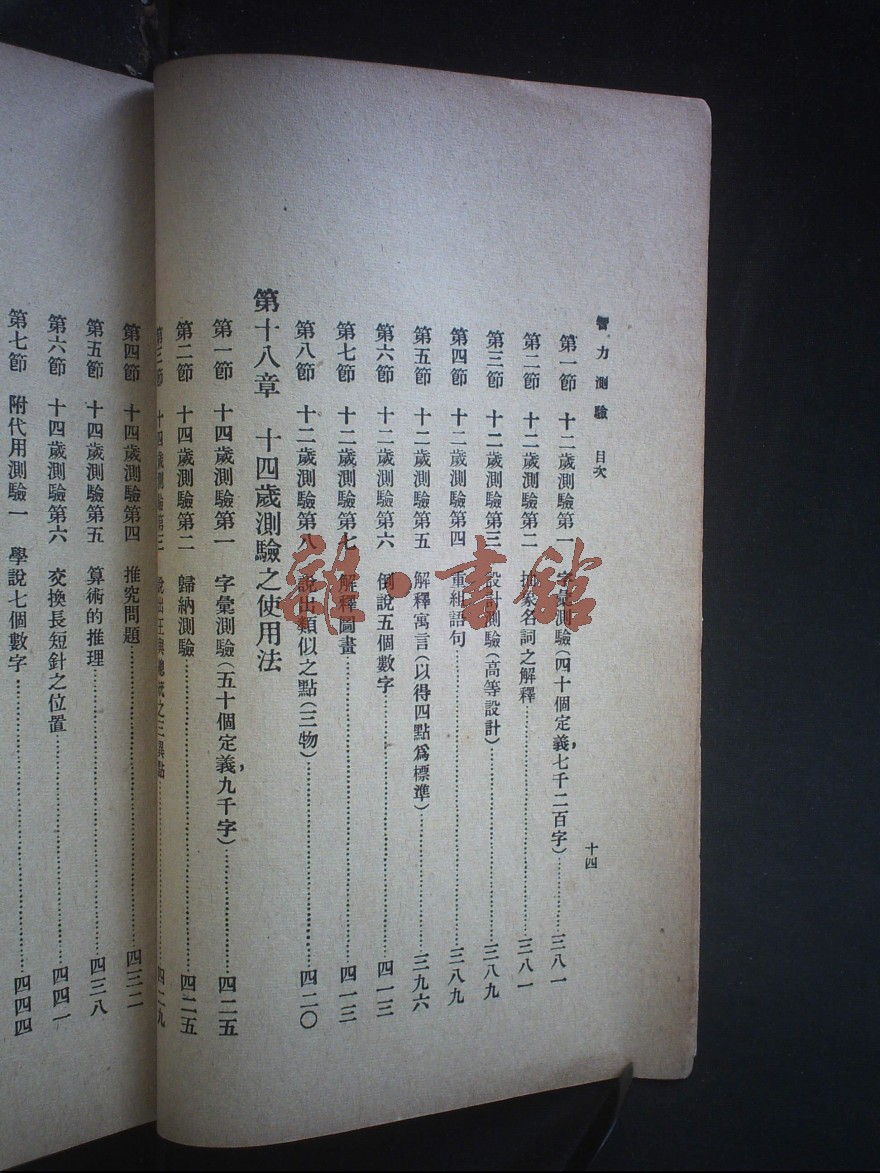 智力測驗 目次
十四
第一節 十二歲測驗第一 字彙測驗(四十個定義,七千二百字)……三八一
第二節 十二歲測驗第二 抽象名詞之解釋……三八一
第三節 十二歲測驗第三 設計測驗(高等設計)……三八九
第四節 十二歲測驗第四 重組語句……三八九
第五節 十二歲測驗第五 解釋寓言(以得四點爲標準)……三九六
第六節 十二歲測驗第六 倒說五個數字……四一三
第七節 十二歲測驗第七 解釋圖畫……四一三
第八節 十二歲測驗第八 說出類似之點(三物)……四二〇
第十八章 十四歲測驗之使用法
第一節 十四歲測驗第一 字彙測驗(五十個定義,九千字)……四二五
第二節 十四歲測驗第二 歸納測驗……四二五
第三節 十四歲測驗第三 說出王與總統之三異點……四二九
第四節 十四歲測驗第四 推究問題……四三二
第五節 十四歲測驗第五 算術的推理……四三八
第六節 十四歲測驗第六 交換長短針之位置……四四一
第七節 附代用測驗一 學說七個數字……四四四
雜·書館